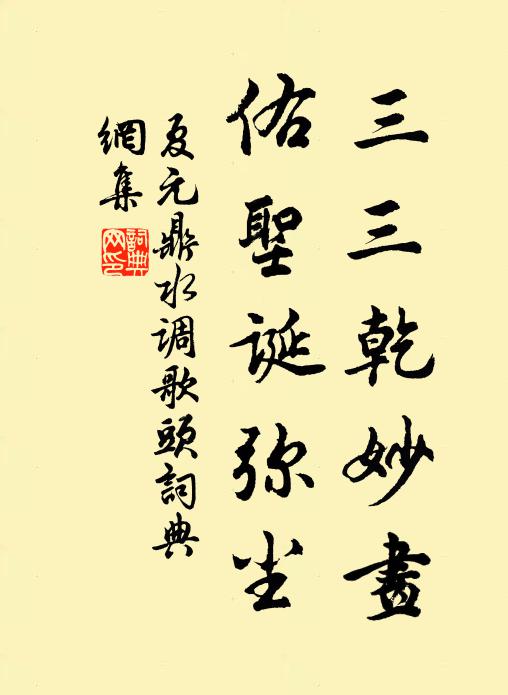 三三乾妙畫
佑聖誕弥坐
夏元鼎水调歌頭詞典
網集
詞典
网印